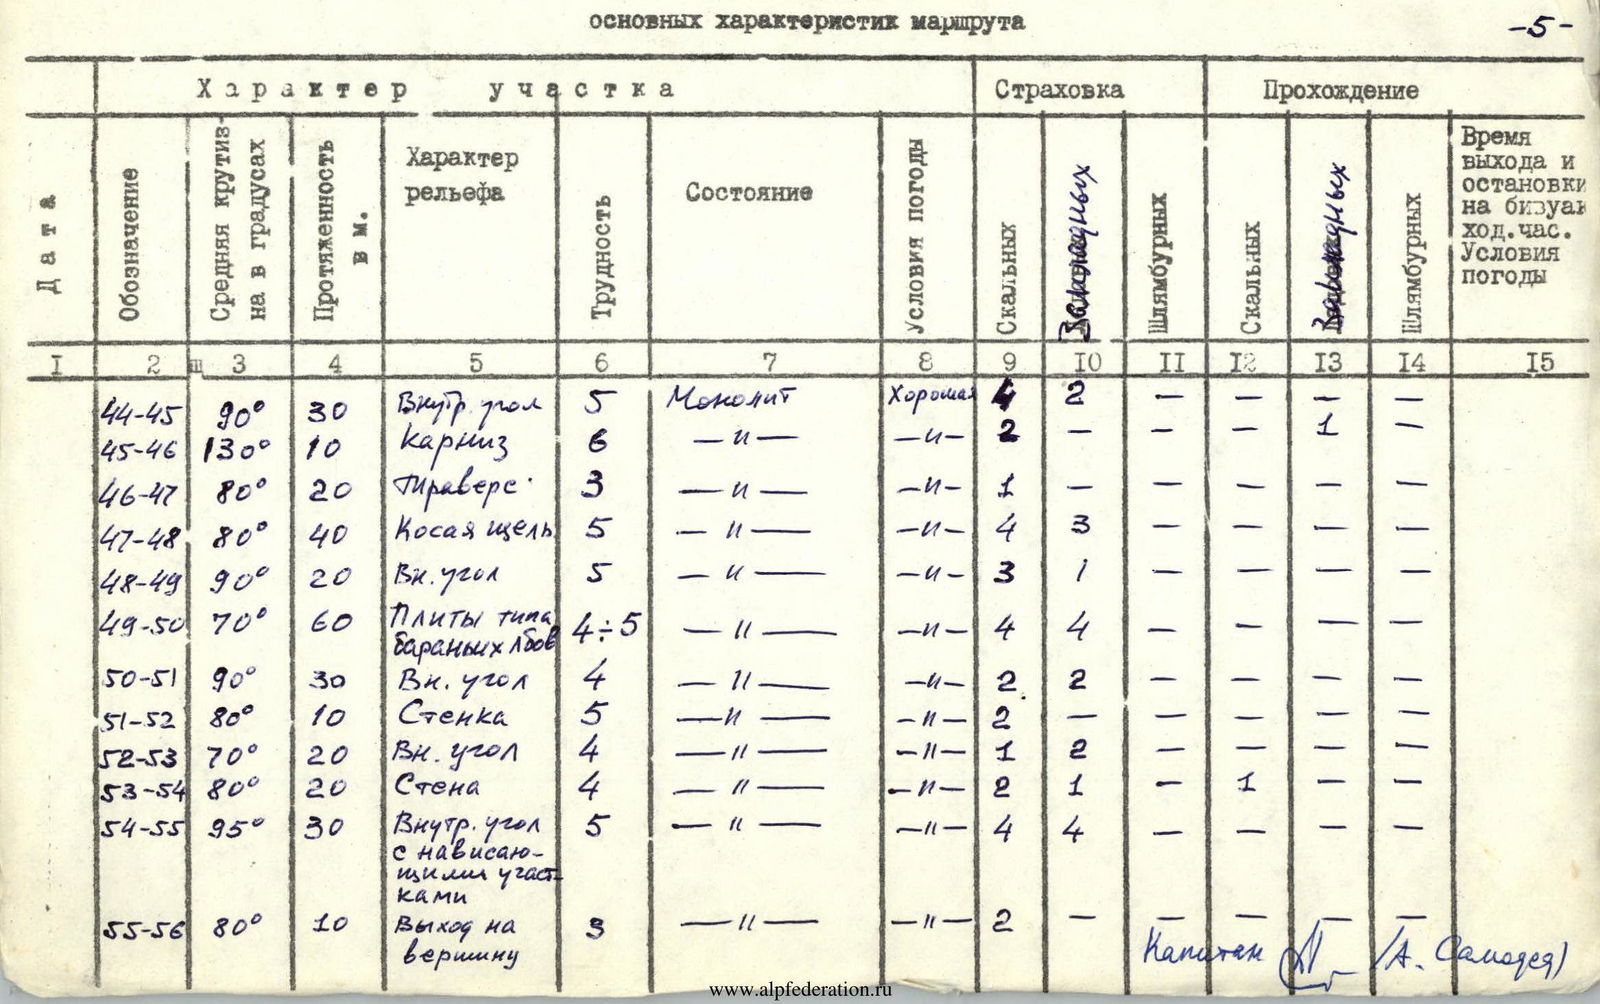 основных характеристик маршрута
-5-
Характер участка Страховка Прохождение
Дата
Обозначение
Средняя крутиз-
на в градусах
Протяженность
в м.
Характер
рельефа
Трудность
Состояние
Условия погоды
Скальных
Закладных
Шлямбурных
Скальных
Закладных
Шлямбурных
Время
выхода и
остановки
на бивуак
ход.час.
Условия
погоды
I 2 3 4 5 6 7 8 9 I0 II I2 I3 I4 I5
44-45 90° 30 Внутр. угол 5 Монолит Хорошая 4 2 — — — —
45-46 130° 10 Карниз 6 —"— —"— 2 — — — 1 —
46-47 80° 20 Траверс 3 —"— —"— 1 — — — — —
47-48 80° 40 Косая щель 5 —"— —"— 4 3 — — — —
48-49 90° 20 Вн. угол 5 —"— —"— 3 1 — — — —
49-50 70° 60 Плиты типа 4÷5 —"— —"— 4 4 — — — —
бараньих лбов
50-51 90° 30 Вн. угол 4 —"— —"— 2 2 — — — —
51-52 80° 10 Стенка 5 —"— —"— 2 — — — — —
52-53 70° 20 Вн. угол 4 —"— —"— 1 2 — — — —
53-54 80° 20 Стена 4 —"— —"— 2 1 — 1 — —
54-55 95° 30 Внутр. угол 5 —"— —"— 4 4 — — — —
с нависаю-
щими участ-
ками
55-56 80° 10 Выход на 3 —"— —"— 2 — — — — —
вершину
Капитан (А. Самодед)
www.alpfederation.ru